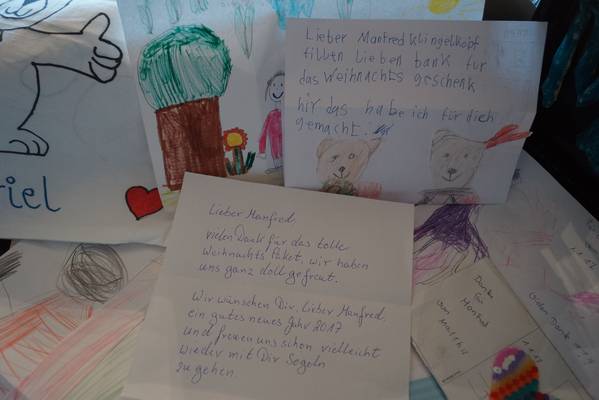 Lieber Manfred Klingelköpf
fillen lieben bank für
das Weihnachts geschenk
hir das habe ich für dich
gemacht:
iel
Lieber Manfred,
vielen Dank für das tolle
Weihnachts Paket. Wir haben
uns ganz doll gefreut.
Wir wünschen Dir, Lieber Manfred,
ein gutes neues Jahr 2017
und freuen uns schon vielleicht
wieder mit Dir Segeln
zu gehen.
Danke
für
Manfred